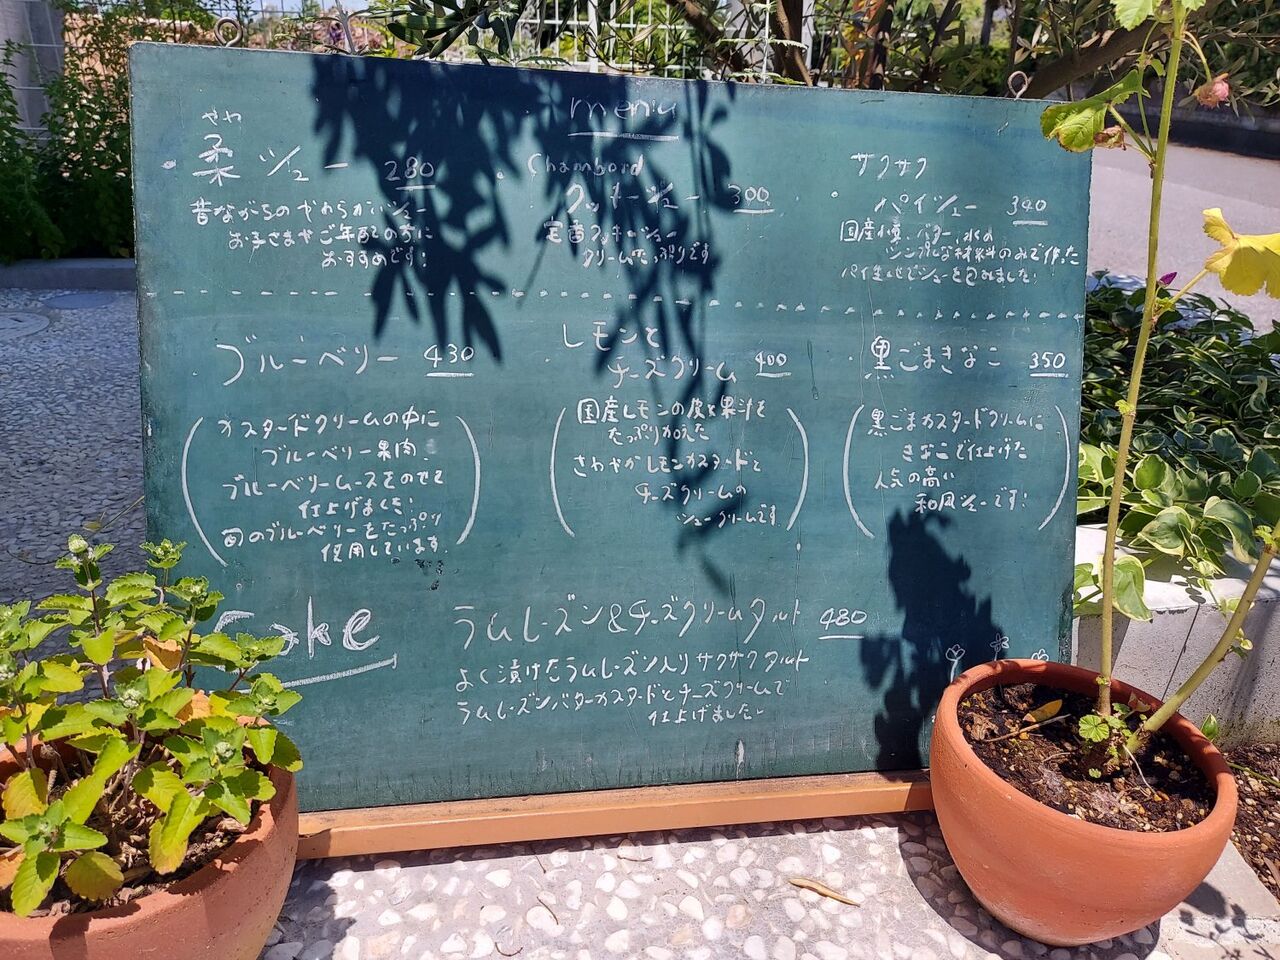 menu
さや
柔シュー 280
昔ながらのやわらかいシュー
お子さまやご年配の方に
おすすめです!
Chambord
クッキーシュー 300
定番クッキーシュー
クリームたっぷりです
サクサク
パイシュー 340
国産小麦、バター、水の
シンプルな材料のみで作った
パイ生地でシューを包みました!
ブルーベリー 430
カスタードクリームの中に
ブルーベリー果肉
ブルーベリームースをのせて
仕上げました!
国のブルーベリーをたっぷり
使用しています。
レモンと
チーズクリーム 400
国産レモンの皮と果汁を
たっぷり加えた
さわやかレモンカスタードと
チーズクリームの
シュークリームです
黒ごまきなこ 350
黒ごまカスタードクリームに
きなこで仕上げた
人気の高い
和風シューです!
Cake
ラムレーズン&チーズクリームタルト 480
よく漬けたラムレーズン入りサクサクタルト
ラムレーズンバターカスタードとチーズクリームで
仕上げました。